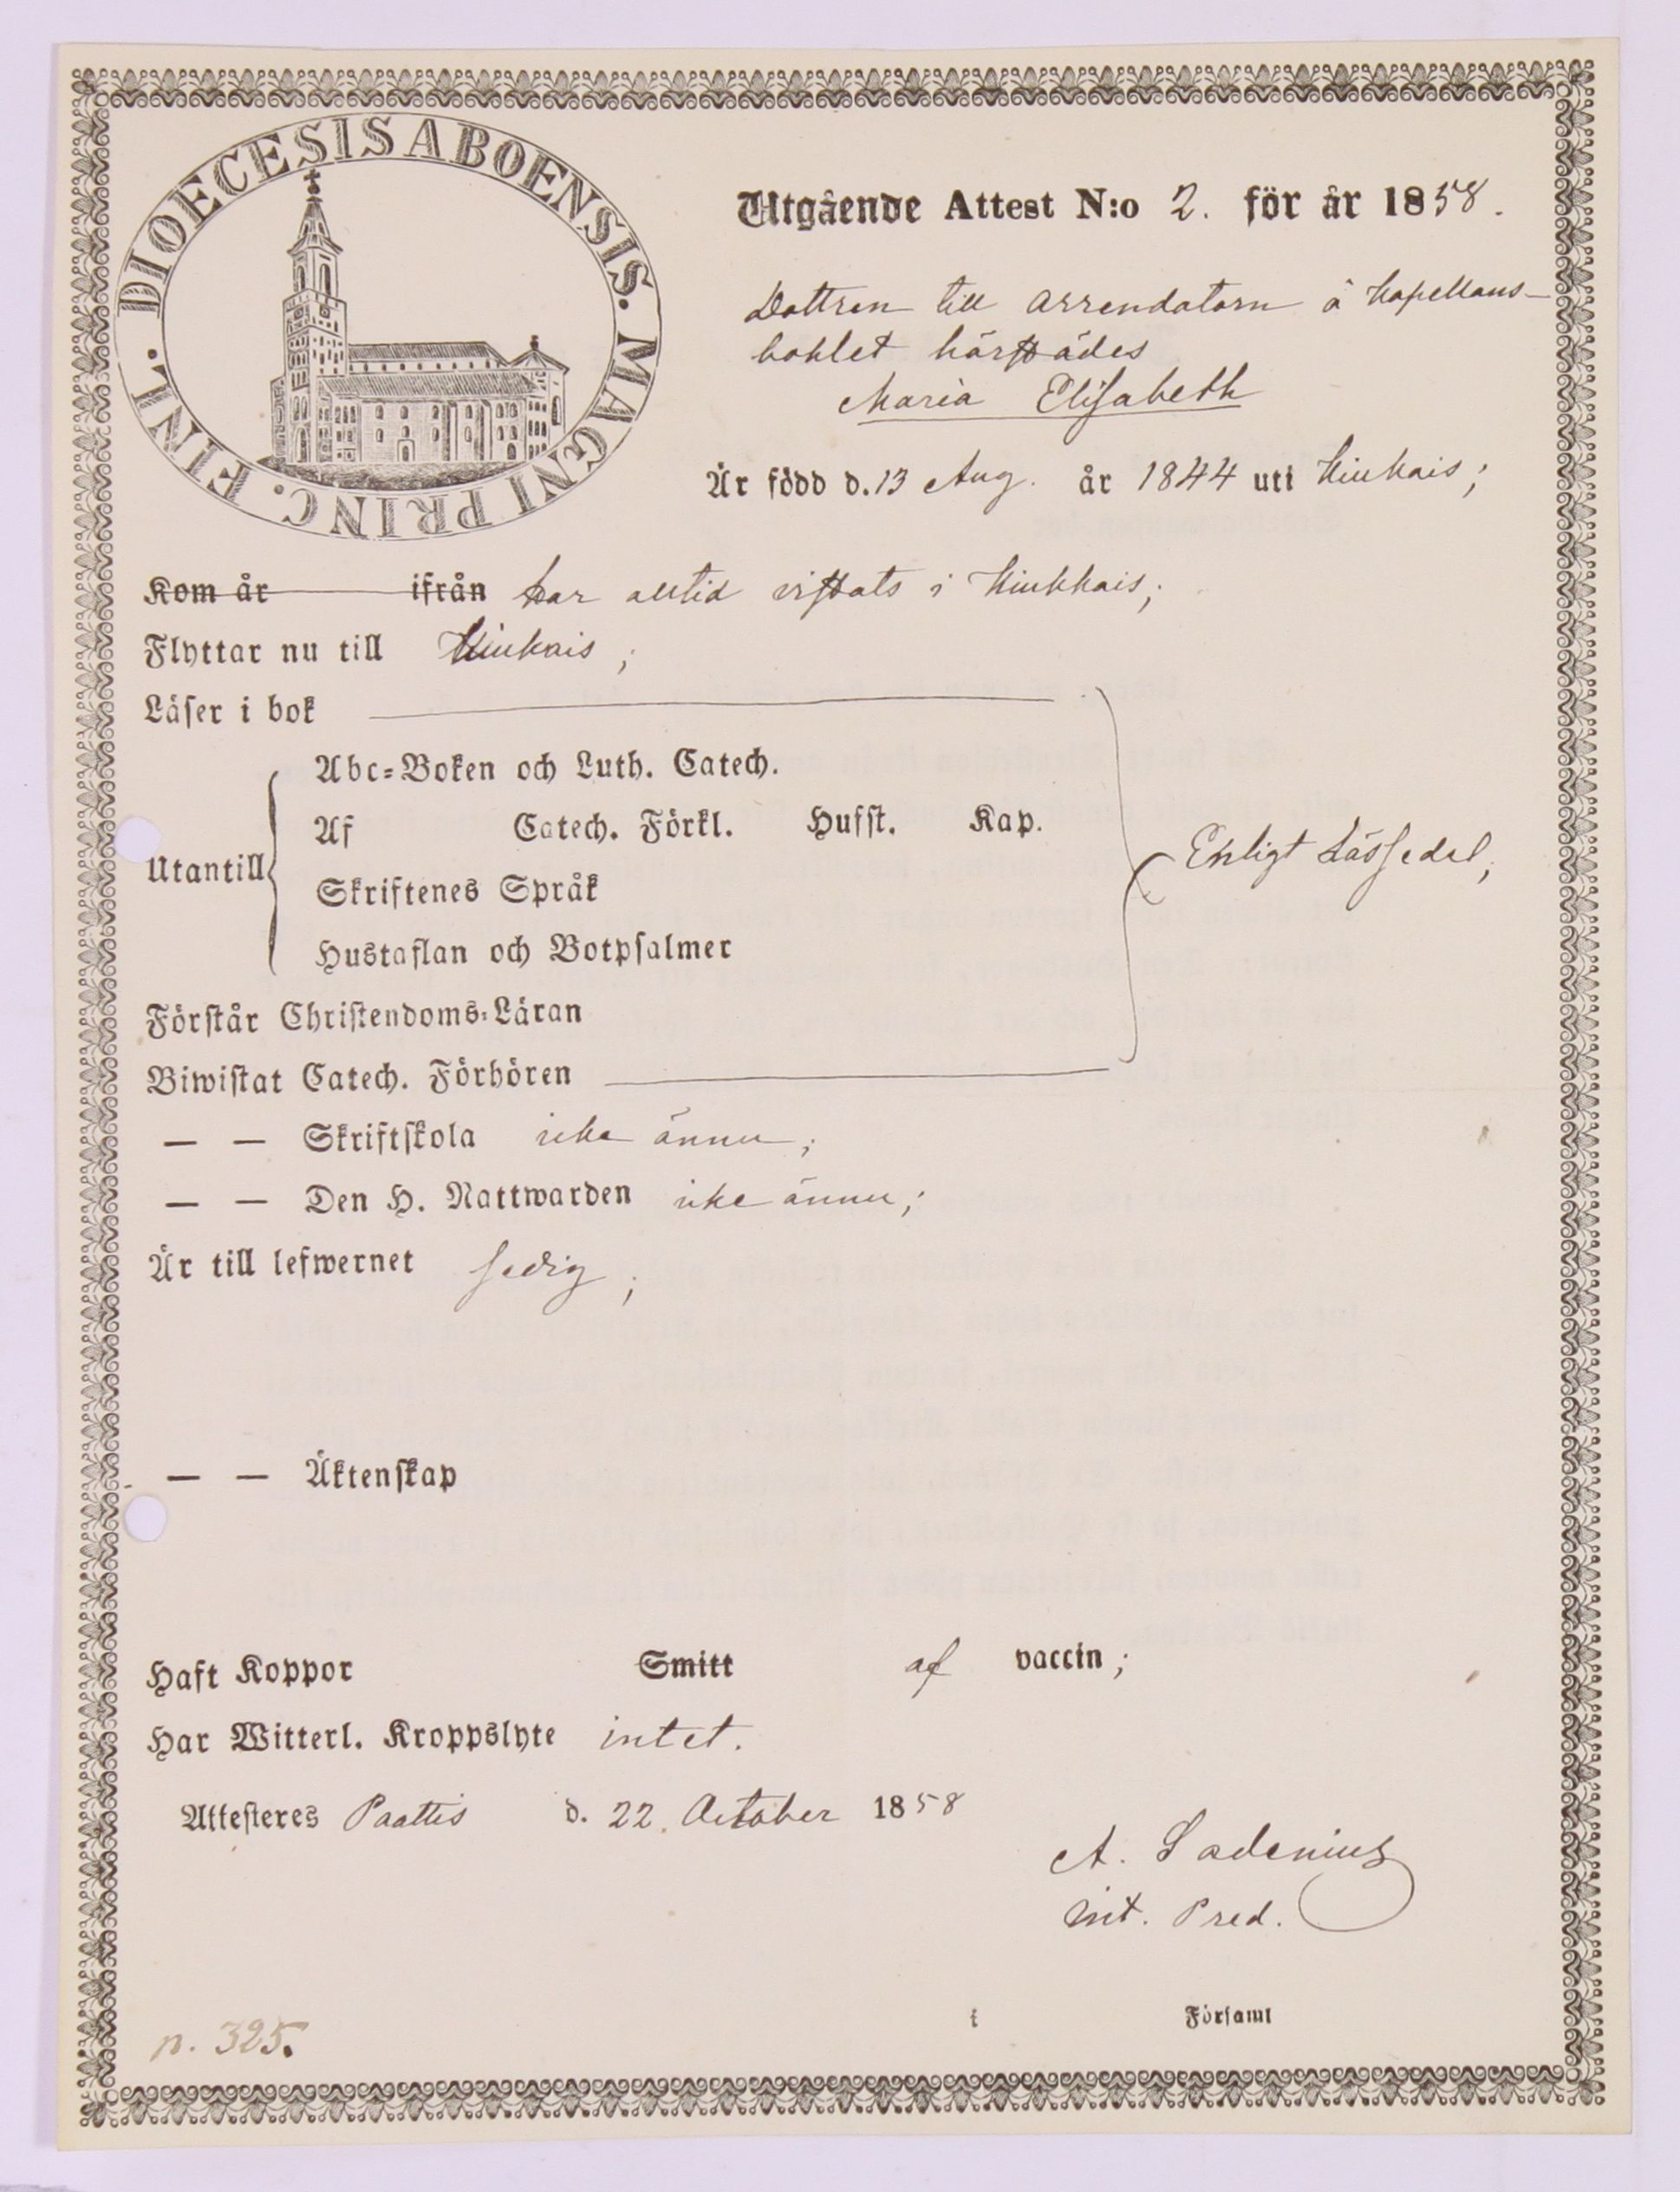 DIOECESIS ABOENSIS. MAGNI PRINC. FINL.
Utgående Attest N:o 2. för år 1858.
Dottren till arrendatorn å Kapellans-
bohlet härstädes
Maria Elisabeth
Är född d. 13 Aug. år 1844 uti Kiukais;
Kom år ifrån har alltid vistats i Kiukkais;
Flyttar nu till Kiukais;
Läser i bok
Abc-Boken och Luth. Catech.
Af Catech. Förkl. Husst. Kap.
Utantill
Enligt Läsesedel;
Skriftenes Språk
Hustaflan och Botpsalmer
Förstår Christendoms-Läran
Biwistat Catech. Förhören
— — Skriftskola icke ännu;
— — Den H. Nattwarden icke ännu;
Är till lefwernet sedig;
— — Äktenskap
Haft Koppor Smitt af vaccin;
Har Witterl. Kroppslyte intet.
Attesteres Paattis d. 22. October 1858
A. Sadenius
Pred.
i Församl
n. 325.